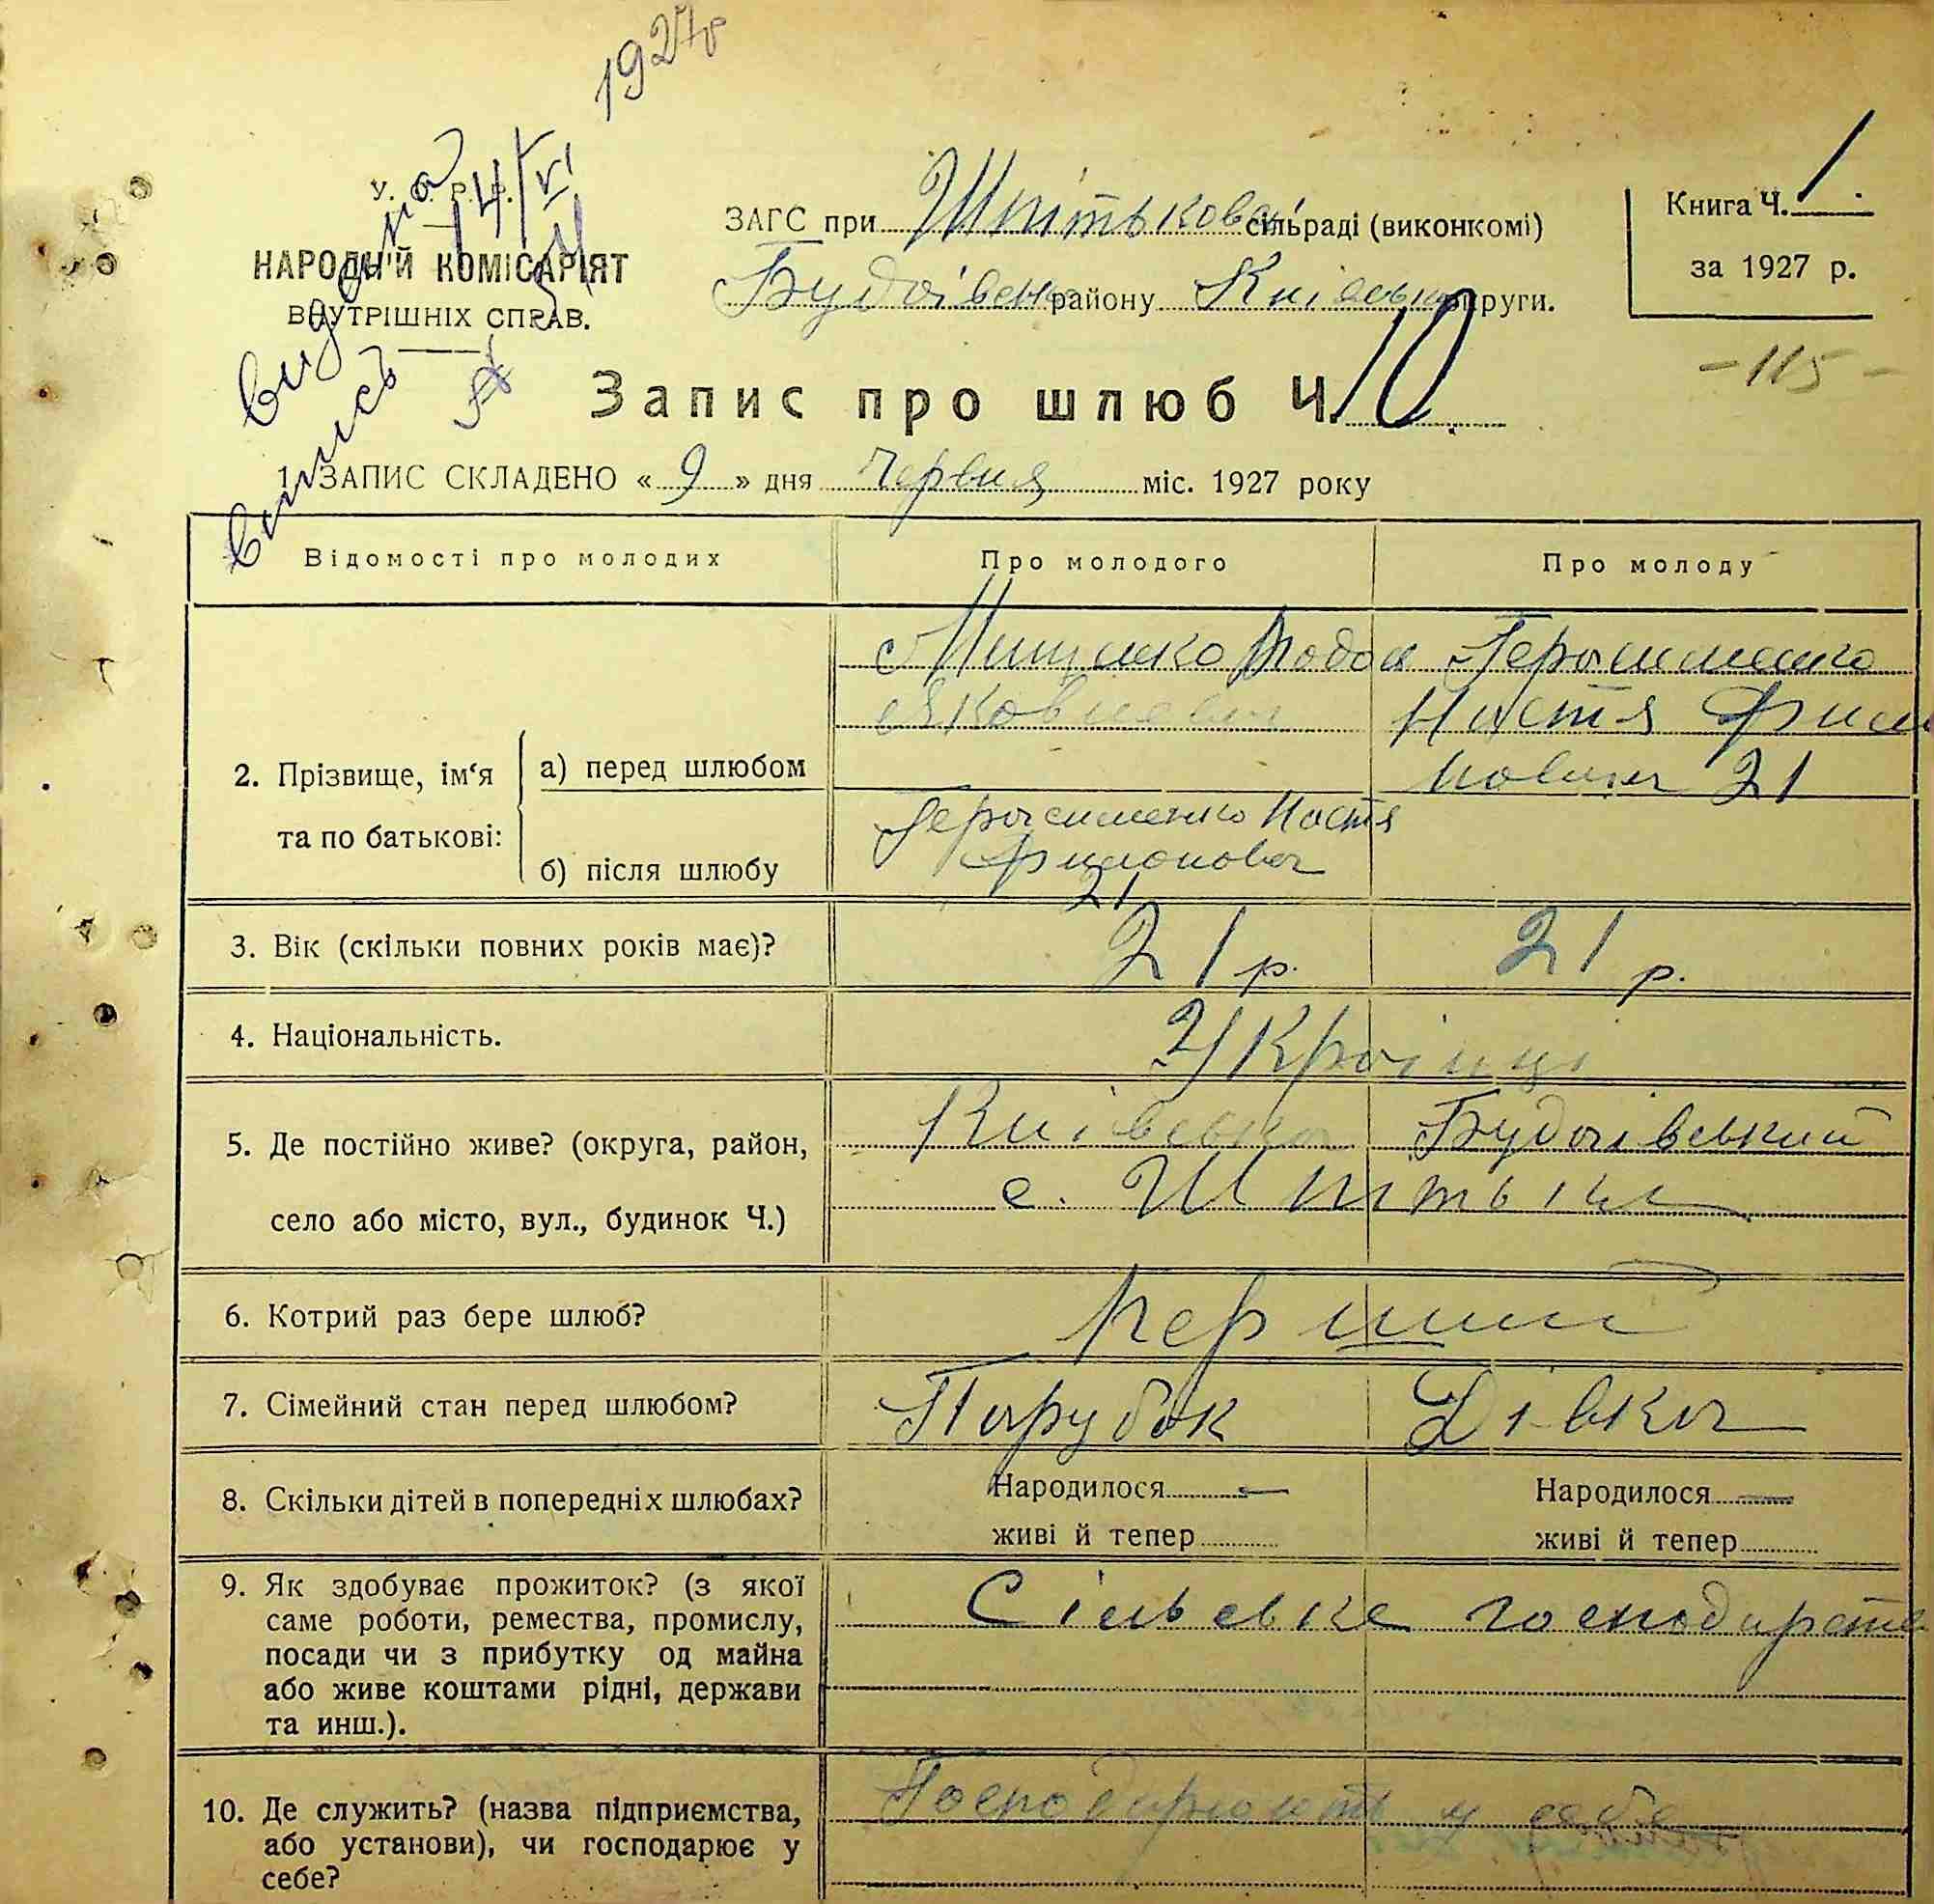 1927р
У. С. Р. Р.
НАРОДНИЙ КОМІСАРІЯТ
ВНУТРІШНІХ СПРАВ.
Видано
випись
14/VI
ЗАГС при Шпітьковск сільраді (виконкомі)
Будаівськ району Київськ округи.
Книга Ч. 1
за 1927 р.
- 115 -
Запис про шлюб Ч. 10
1. ЗАПИС СКЛАДЕНО « 9 » дня Червня міс. 1927 року
Відомості про молодих Про молодого Про молоду
2. Прізвище, ім‘я та по батькові:
а) перед шлюбом
Мищенко Тодос
Яковлевич
Герасименко
Настя Фили
мовна 21
б) після шлюбу
Герасименко Настя
Филоновна
21
3. Вік (скільки повних років має)? 21 р. 21 р.
4. Національність. Українці
5. Де постійно живе? (округа, район, Київська Будаівський
село або місто, вул., будинок Ч.) с. Шпітьки
6. Котрий раз бере шлюб? перший
7. Сімейний стан перед шлюбом? Парубок Дівка
8. Скільки дітей в попередніх шлюбах? Народилося — Народилося —
живі й тепер живі й тепер
9. Як здобуває прожиток? (з якої Сільське господарств
саме роботи, ремества, промислу,
посади чи з прибутку од майна
або живе коштами рідні, держави
та инш.).
10. Де служить? (назва підприємства, Господарюють у себе
або установи), чи господарює у
себе?